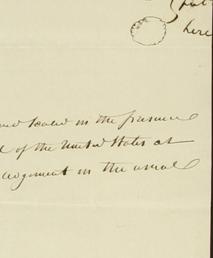 here
and sealed in the presence
l of the United States at
dgement in the usual